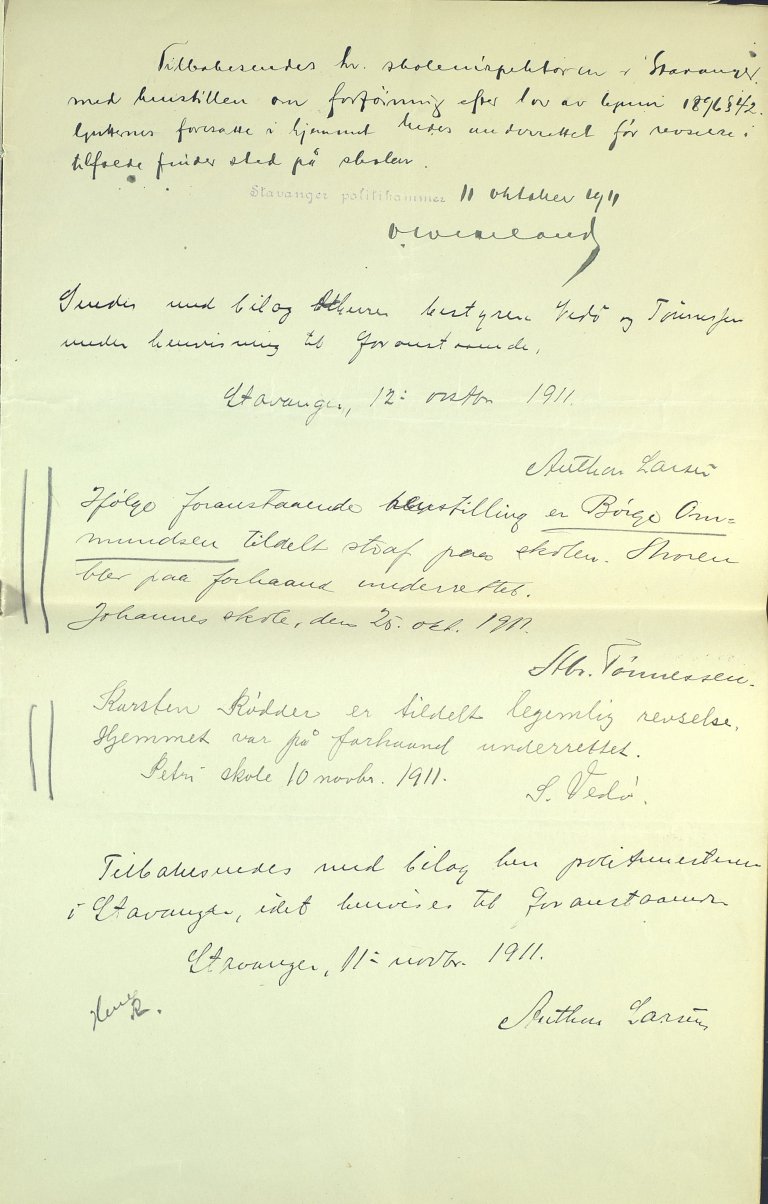 Tilbakesendes hr. skoleinspektøren i Stavanger
med henstillen om forføining efter lov av 6 juni 1896 § 42.
Gutternes foresatte i hjemmet bedes underrettet før revselse i
tilfælde finder sted på skolen.
Stavanger politikammer 11 oktober 1911
Sendes med bilag herrer bestyrer Vedø og Tønnessen
under henvisning til foranstaaende.
Stavanger, 12= oktbr 1911.
Anthon Larsen
Ifølge foranstaaende henstilling er Børge Om=
mundsen tildelt straf paa skolen. Moren
blev paa forhaand underrettet.
Johannes skole, den 25. okt. 1911.
Tønnessen.
Karsten Rødder er tildelt legemlig revselse.
Hjemmet var på forhaand underrettet.
Petri skole 10 novbr. 1911.
S. Vedø.
Tilbakesendes med bilag herr politimesteren
i Stavanger, idet henvises til foranstaaende
Stavanger, 11= novbr. 1911.
Anthon Larsen